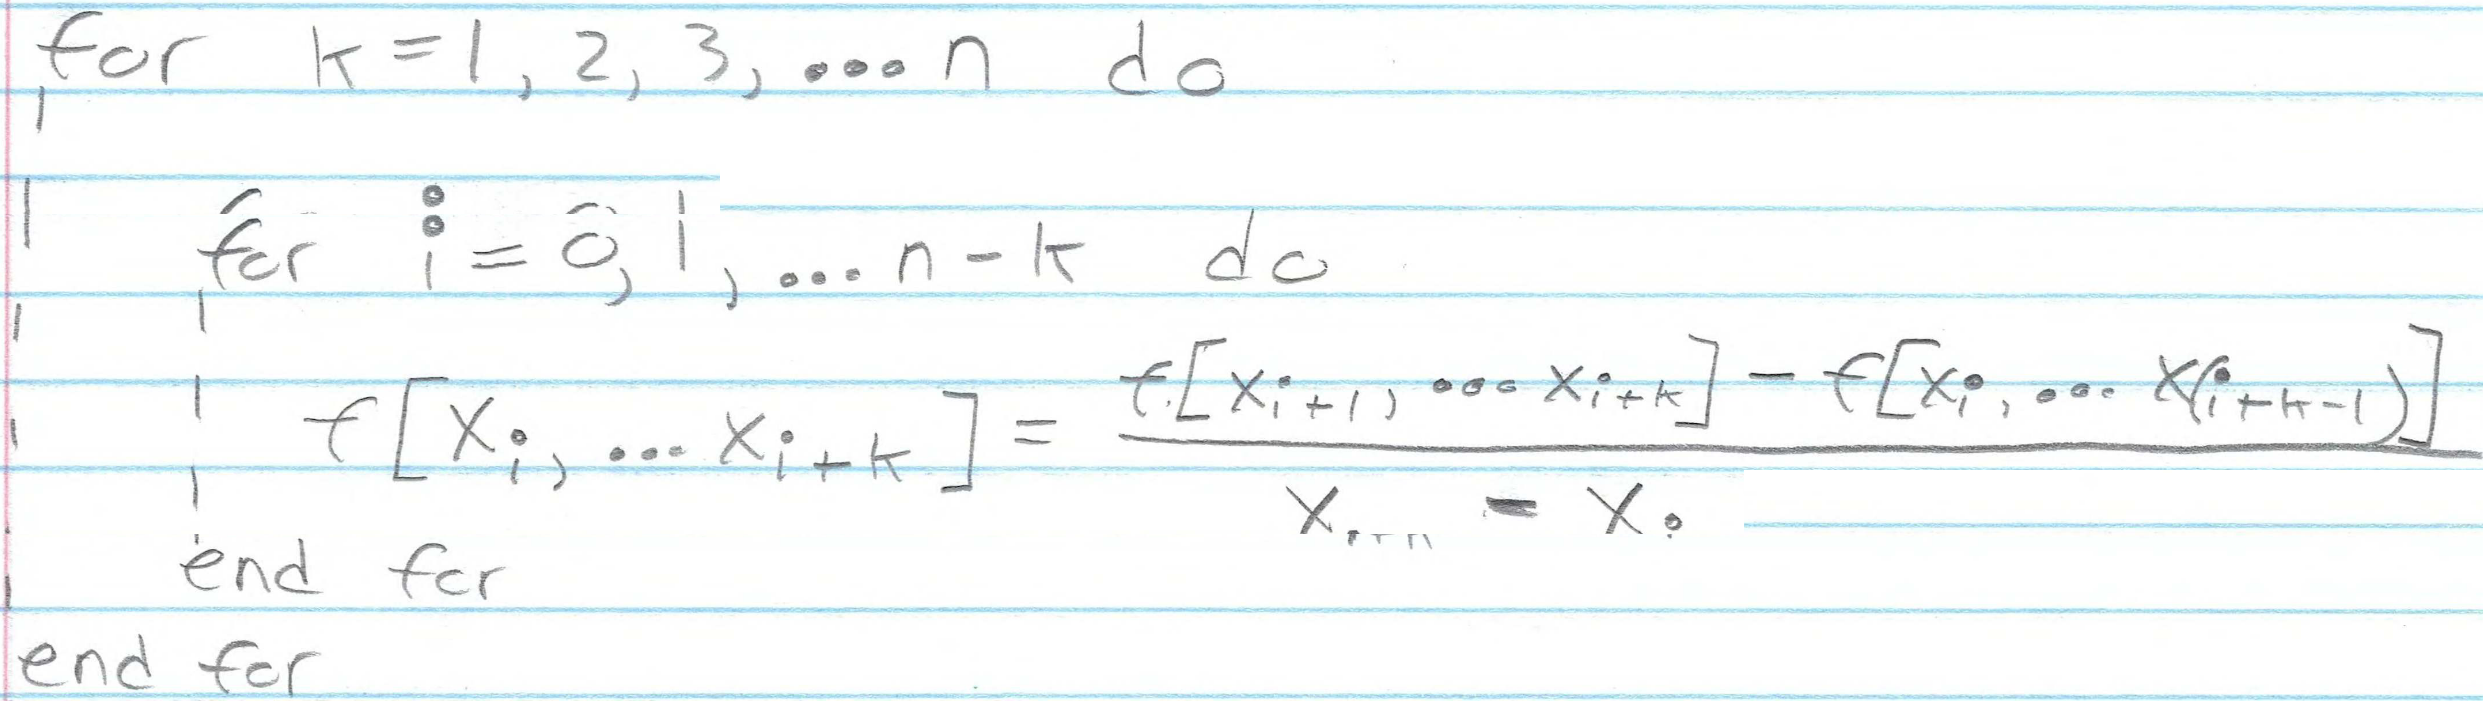 for k=1, 2, 3, ... n do
for i = 0, 1, ... n - k do
f[x_i, ... x_{i+k}] = \frac{f[x_{i+1}, ... x_{i+k}] - f[x_i, ... x_{(i+k-1)}]}{x - x}
end for
end for